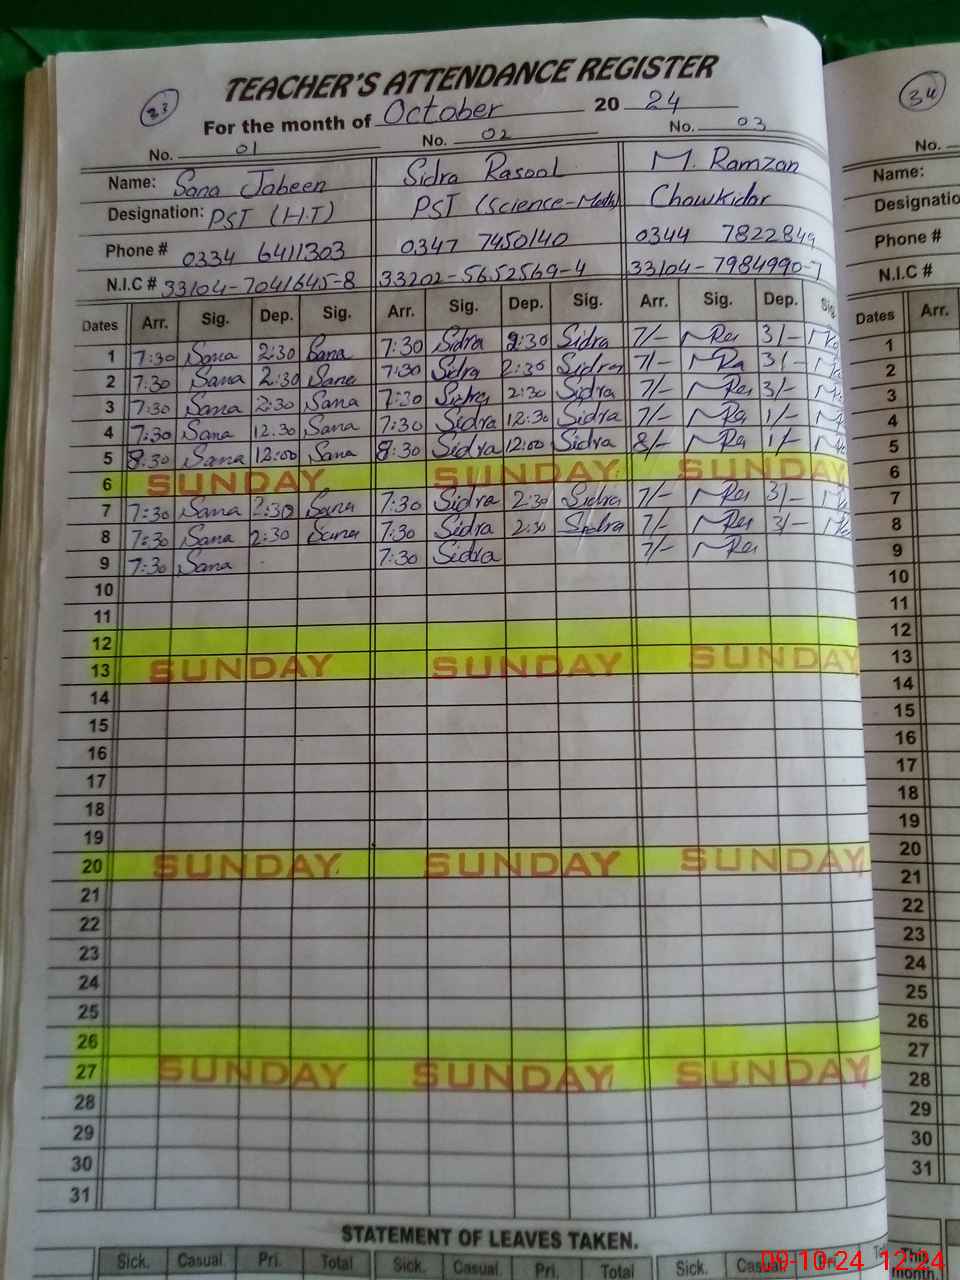 TEACHER'S ATTENDANCE REGISTER
For the month of October 2024
No. 01 No. 02 No. 03
Name: Sana Jabeen Sidra Rasool M. Ramzan
Designation: PST (H.T) PST (Science-Math) Chowkidar
Phone # 0334 6411303 0347 7450140 0344 7822849
N.I.C # 33104-7041645-8 33202-5652569-4 33104-7984990-7
Dates Arr. Sig. Dep. Sig. Arr. Sig. Dep. Sig. Arr. Sig. Dep.
1 7:30 Sana 2:30 Sana 7:30 Sidra 2:30 Sidra 7/- 3/-
2 7:30 Sana 2:30 Sana 7:30 Sidra 2:30 Sidra 7/- 3/-
3 7:30 Sana 2:30 Sana 7:30 Sidra 2:30 Sidra 7/- 3/-
4 7:30 Sana 12:30 Sana 7:30 Sidra 12:30 Sidra 7/- 1/-
5 8:30 Sana 12:00 Sana 8:30 Sidra 12:00 Sidra 8/- 1/-
6 SUNDAY SUNDAY SUNDAY
7 7:30 Sana 2:30 Sana 7:30 Sidra 2:30 Sidra 7/- 3/-
8 7:30 Sana 2:30 Sana 7:30 Sidra 2:30 Sidra 7/- 3/-
9 7:30 Sana 7:30 Sidra 7/-
10
11
12
13 SUNDAY SUNDAY SUNDAY
14
15
16
17
18
19
20 SUNDAY SUNDAY SUNDAY
21
22
23
24
25
26
27 SUNDAY SUNDAY SUNDAY
28
29
30
31
STATEMENT OF LEAVES TAKEN.
Sick. Casual Pri. Total Sick. Casual Pri. Total Sick.
34
No.
Name:
Designatio
Phone #
N.I.C #
Dates Arr.
1
2
3
4
5
6
7
8
9
10
11
12
13
14
15
16
17
18
19
20
21
22
23
24
25
26
27
28
29
30
31
This
month
09-10-24 12:24